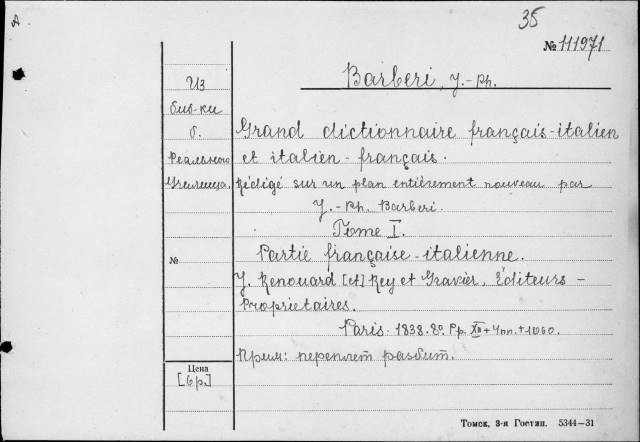 А
35
№ 111971
Barberi, J.-Ph.
Из
биб-ки
б.
Реального
Училища.
Grand dictionnaire français-italien
et italien-français.
Rédigé sur un plan entièrement nouveau par
J.-Ph. Barberi.
Tome I.
Partie française-italienne.
№
J. Renouard [et] Rey et Gravier, Éditeurs-
Propriétaires.
Paris. 1838. 8º. Pp. + 4 nn. + 1060.
Прим: переплет разбит.
Цена
[6р.]
Томск, 3-я Гостип. 5344—31